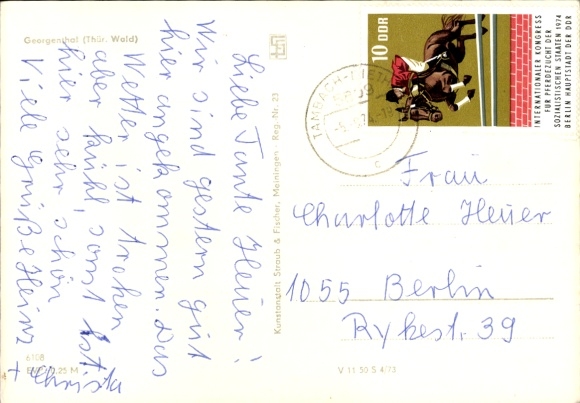 Georgenthal (Thür. Wald)
Liebe Tante Heuer!
Wir sind gestern gut
hier angekommen. Das
Wetter ist troken
aber kühl, sonst ist
hier sehr schön
Viele Grüße Heinz
+ Christa
6108
EVP 0,25 M
Kunstanstalt Straub & Fischer, Meiningen Reg.-Nr. 23
V 11 50 S 4/73
10 DDR
INTERNATIONALER KONGRESS
FÜR PFERDEZUCHT DER
SOZIALISTISCHEN STAATEN 1974
BERLIN HAUPTSTADT DER DDR
TAMBACH-
c
Frau
Charlotte Heuer
1055 Berlin
Rykestr. 39